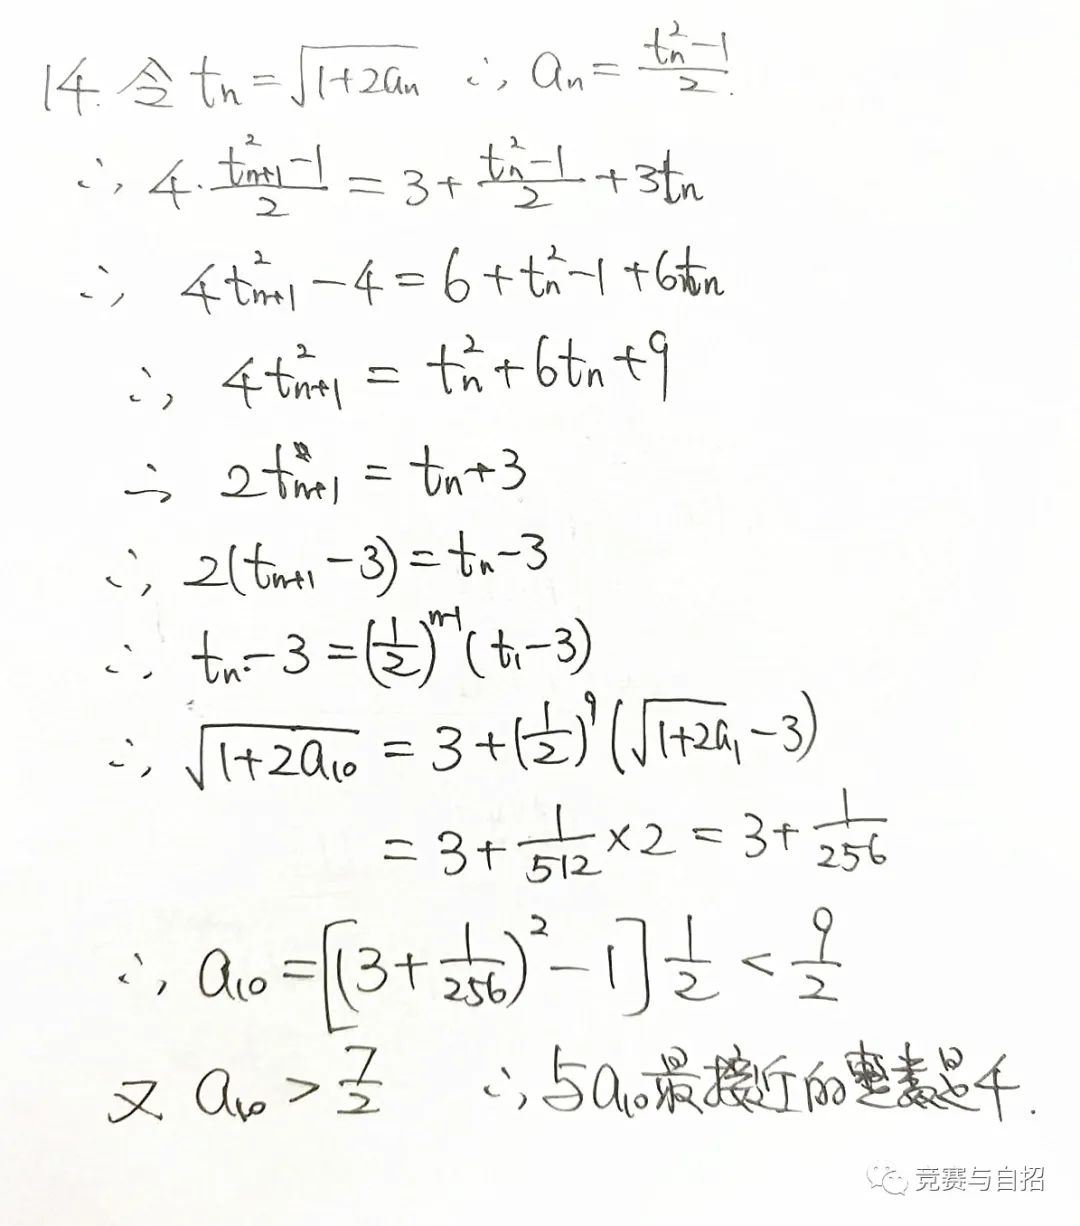 14. 令 tₙ = √(1+2aₙ) ∴ aₙ = (tₙ²-1)/2.
∴ 4·(tₙ₊₁²-1)/2 = 3 + (tₙ²-1)/2 + 3tₙ
∴ 4tₙ₊₁² - 4 = 6 + tₙ² - 1 + 6tₙ
∴ 4tₙ₊₁² = tₙ² + 6tₙ + 9
∴ 2tₙ₊₁ = tₙ + 3
∴ 2(tₙ₊₁ - 3) = tₙ - 3
∴ tₙ - 3 = (1/2)ⁿ⁻¹ (t₁ - 3)
∴ √(1+2a₁₀) = 3 + (1/2)⁹ (√(1+2a₁) - 3)
= 3 + 1/512 × 2 = 3 + 1/256
∴ a₁₀ = [(3 + 1/256)² - 1] 1/2 < 9/2
又 a₁₀ > 7/2 ∴ 与a₁₀最接近的整数是4.
竞赛与自招